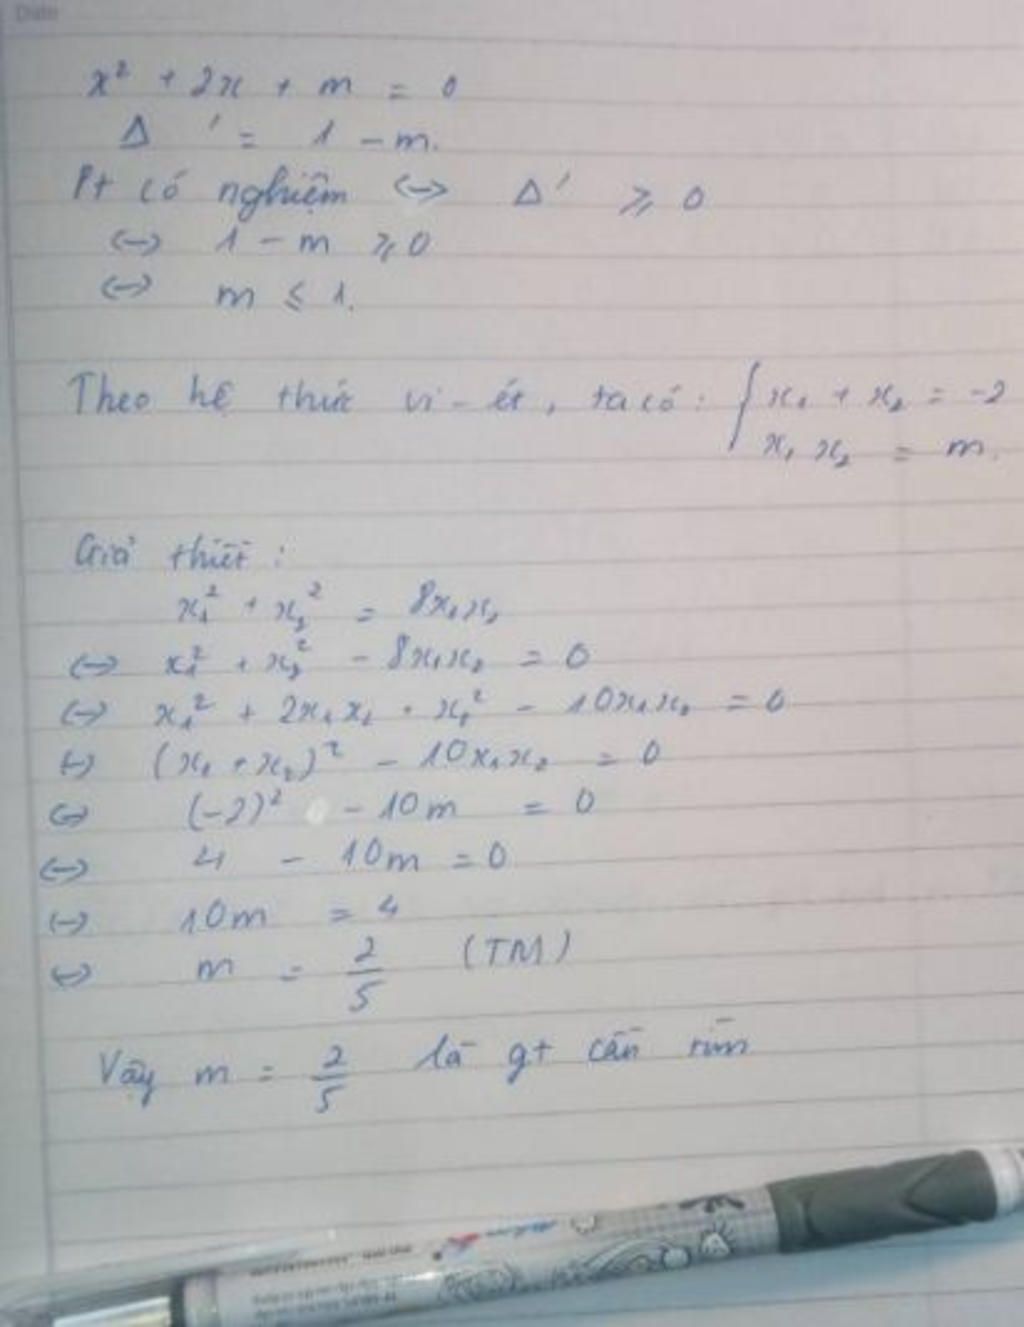 Date
x² + 2x + m = 0
Δ' = 1 - m.
Pt có nghiệm <-> Δ' ⩾ 0
<-> 1 - m ⩾ 0
<-> m ≤ 1.
Theo hệ thức vi-ét, ta có: { x₁ + x₂ = -2
x₁ x₂ = m.
Giả thiết:
x₁² + x₂² = 8x₁x₂
<-> x₁² + x₂² - 8x₁x₂ = 0
<-> x₁² + 2x₁x₂ + x₂² - 10x₁x₂ = 0
<-> (x₁ + x₂)² - 10x₁x₂ = 0
<-> (-2)² - 10m = 0
<-> 4 - 10m = 0
<-> 10m = 4
<-> m = 2/5 (TM)
Vậy m = 2/5 là gt cần tìm